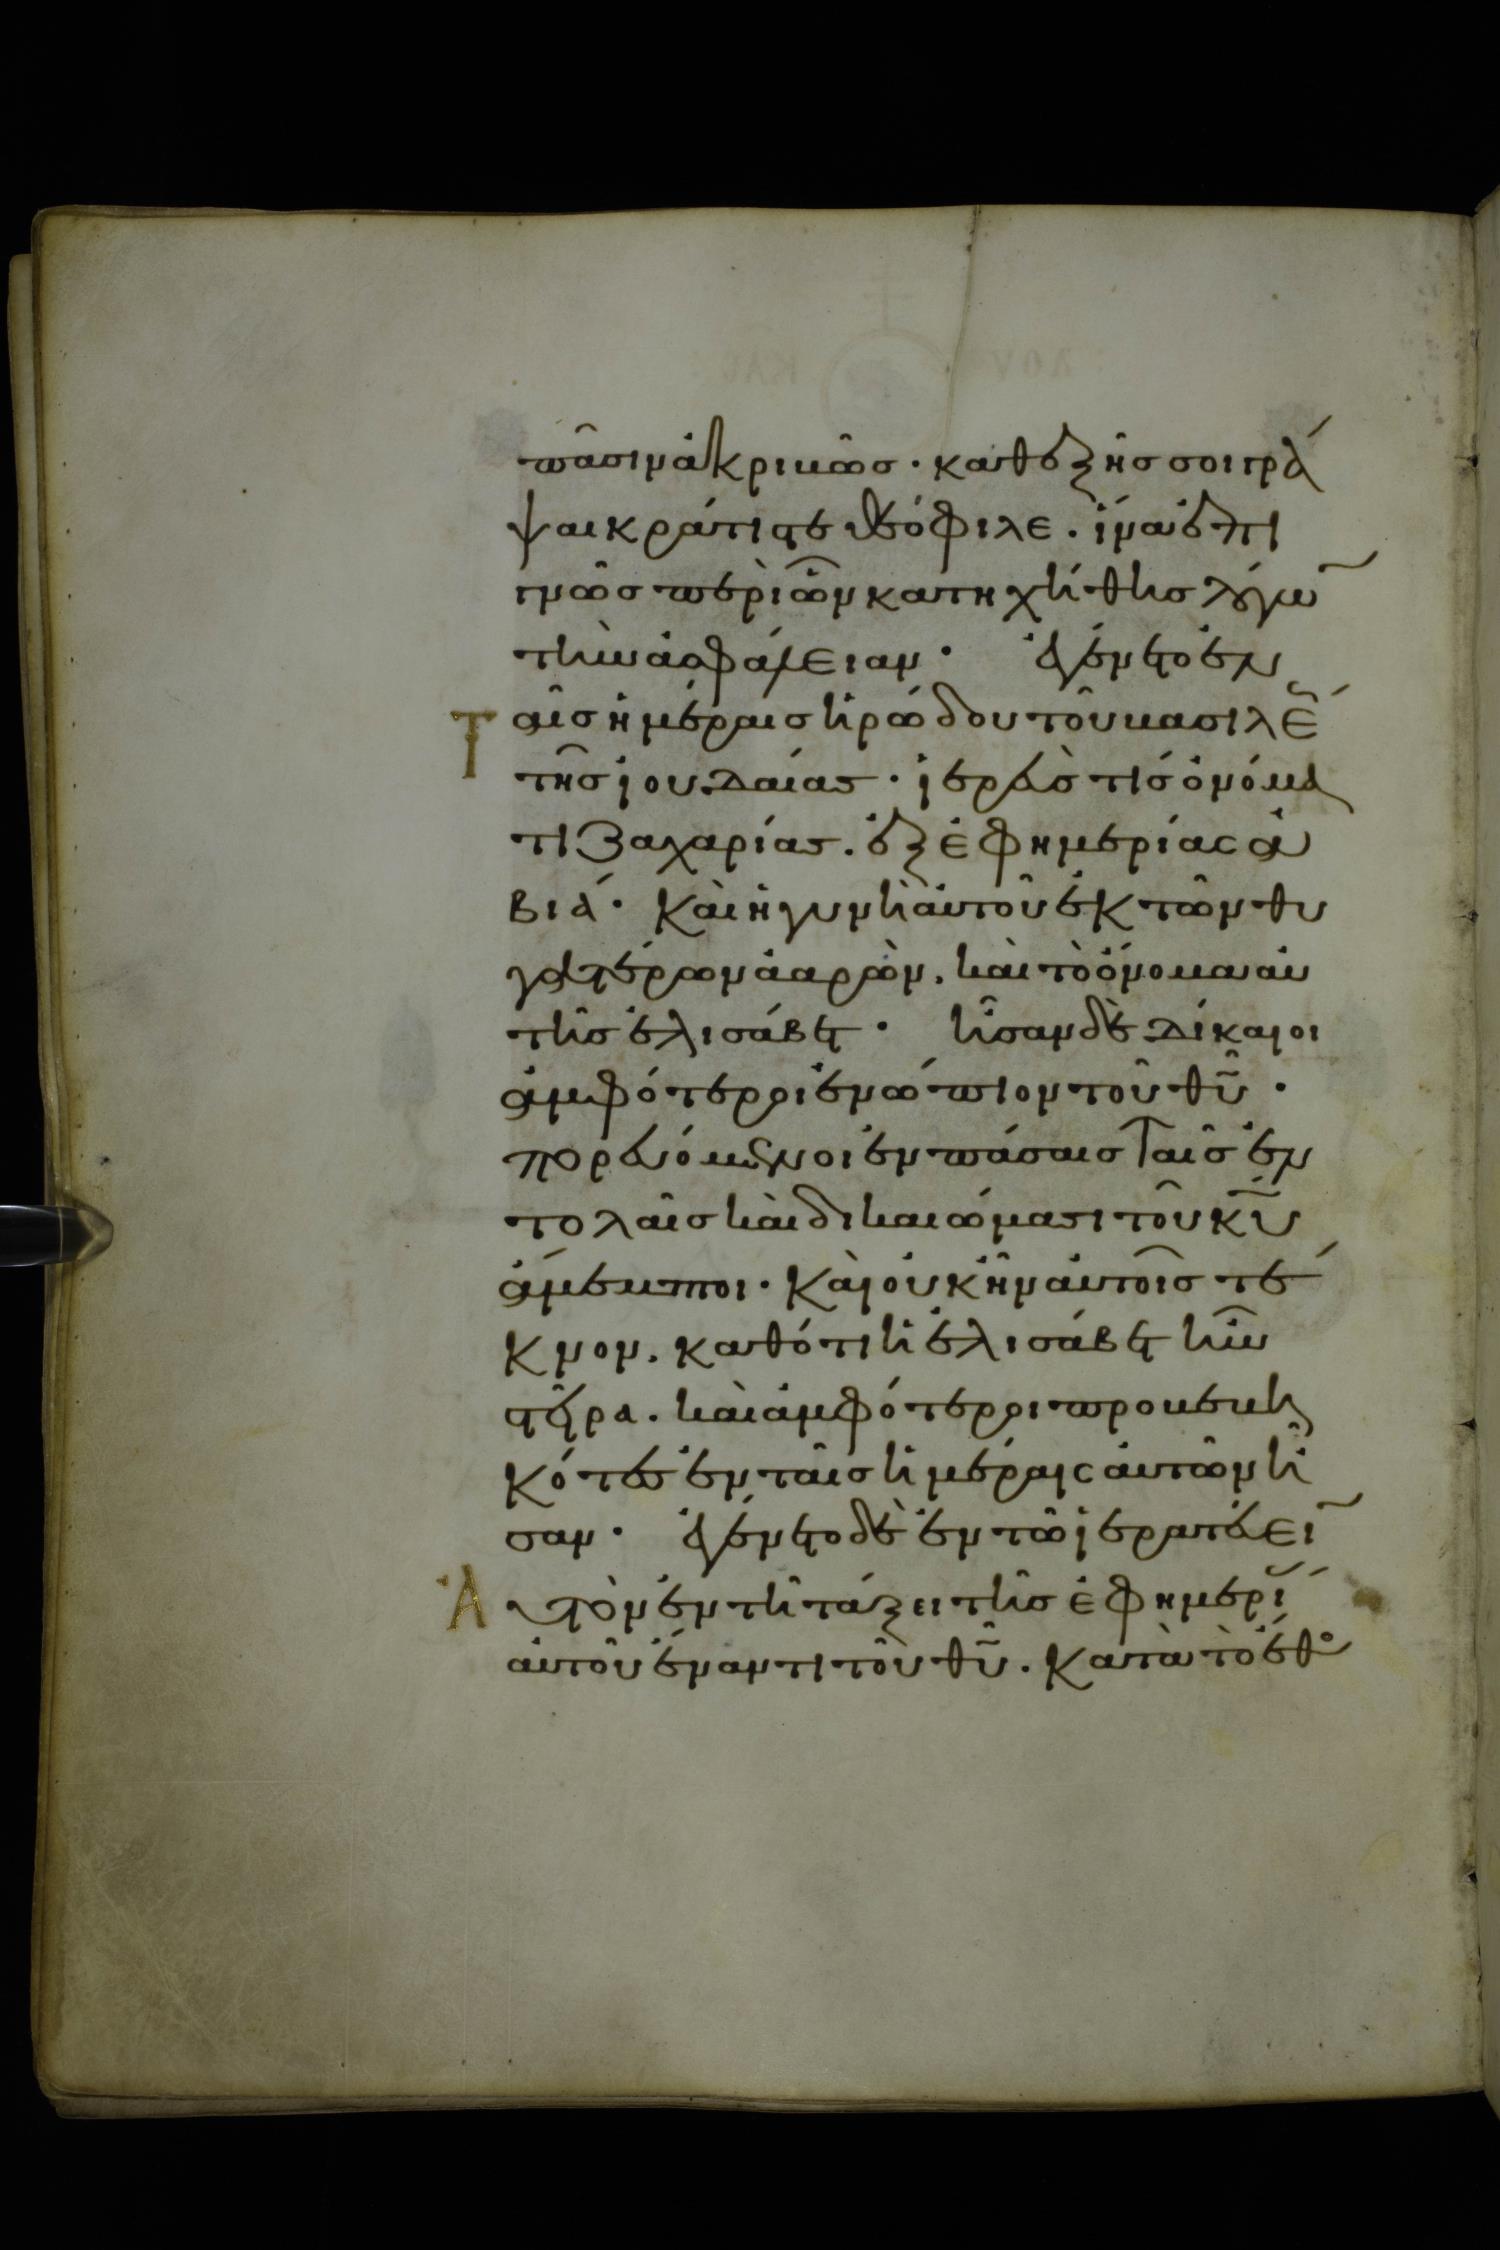 πᾶσιν ἀκριβῶς · καθεξῆς σοι γρά
ψαι κράτιστε θεόφιλε . ἵνα ἐπι
γνῶς περὶ ὧν κατηχήθης λόγω
τὴν ἀσφάλειαν · ἐγένετο ἐν
Ταῖς ἡμέραις ἡρώδου τοῦ βασιλέ
τῆς ἰουδαίας · ἱερεὺς τίς ὀνόμα
τι ζαχαρίας . ἐξ ἐφημερίας ἀ
βιά · καὶ ἡ γυνὴ αὐτοῦ ἐκ τῶν θυ
γατέρων ἀαρὼν . καὶ τὸ ὄνομα αὐ
τῆς ἐλισάβετ · ἦσαν δὲ δίκαιοι
ἀμφότεροι ἐνώπιον τοῦ θυ ·
πορευόμενοι ἐν πάσαις ταῖς ἐν
τολαῖς καὶ δικαιώμασι τοῦ κυ
ἄμεμπτοι · καὶ οὐκ ἦν αὐτοῖς τέ
κνον . καθότι ἡ ἐλισάβετ ἦν
στεῖρα . καὶ ἀμφότεροι προβεβη
κότες ἐν ταῖς ἡμέραις αὐτῶν ἦ
σαν · ἐγένετο δὲ ἐν τῶ ἱερατεύει
Αὐτὸν ἐν τῆ τάξει τῆς ἐφημερί
αὐτοῦ ἔναντι τοῦ θυ . κατὰ τὸ ἔθο